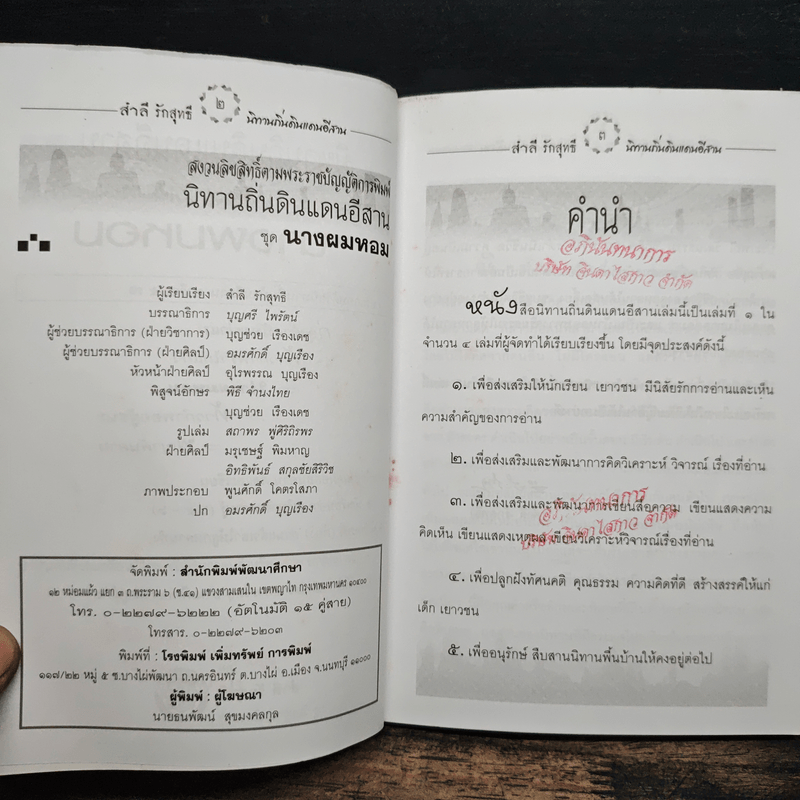 สำลี รักสุทธี ๒ นิทานถิ่นดินแดนอีสาน
สงวนลิขสิทธิ์ตามพระราชบัญญัติการพิมพ์
นิทานถิ่นดินแดนอีสาน
ชุด นางผมหอม
ผู้เรียบเรียง สำลี รักสุทธี
บรรณาธิการ บุญศรี ไพรัตน์
ผู้ช่วยบรรณาธิการ (ฝ่ายวิชาการ) บุญช่วย เรืองเดช
ผู้ช่วยบรรณาธิการ (ฝ่ายศิลป์) อมรศักดิ์ บุญเรือง
หัวหน้าฝ่ายศิลป์ อุไรพรรณ บุญเรือง
พิสูจน์อักษร พิธี จำนงไทย
บุญช่วย เรืองเดช
รูปเล่ม สถาพร พู่ศิริถิรพร
ฝ่ายศิลป์ มรุเชษฐ์ พิมหาญ
อิทธิพันธ์ สกุลชัยสิริวิช
ภาพประกอบ พูนศักดิ์ โคตรโสภา
ปก อมรศักดิ์ บุญเรือง
จัดพิมพ์ : สำนักพิมพ์พัฒนาศึกษา
๑๒ หม่อมแผ้ว แยก ๓ ถ.พระราม ๖ (ซ.๔๑) แขวงสามเสนใน เขตพญาไท กรุงเทพมหานคร ๑๐๔๐๐
โทร. ๐-๒๒๗๙-๖๒๒๒ (อัตโนมัติ ๑๕ คู่สาย)
โทรสาร. ๐-๒๒๗๙-๖๒๐๓
พิมพ์ที่ : โรงพิมพ์ เพิ่มทรัพย์ การพิมพ์
๑๑๗/๒๒ หมู่ ๕ ซ.บางไผ่พัฒนา ถ.นครอินทร์ ต.บางไผ่ อ.เมือง จ.นนทบุรี ๑๑๐๐๐
ผู้พิมพ์ : ผู้โฆษณา
นายธนพัฒน์ สุขมงคลกุล
สำลี รักสุทธี ๓ นิทานถิ่นดินแดนอีสาน
คำนำ
อภินันทนาการ
บริษัท จินดาไสกาว จำกัด
หนังสือนิทานถิ่นดินแดนอีสานเล่มนี้เป็นเล่มที่ ๑ ใน
จำนวน ๔ เล่มที่ผู้จัดทำได้เรียบเรียงขึ้น โดยมีจุดประสงค์ดังนี้
๑. เพื่อส่งเสริมให้นักเรียน เยาวชน มีนิสัยรักการอ่านและเห็น
ความสำคัญของการอ่าน
๒. เพื่อส่งเสริมและพัฒนาการคิดวิเคราะห์ วิจารณ์ เรื่องที่อ่าน
๓. เพื่อส่งเสริมและพัฒนาการเขียนสื่อความ เขียนแสดงความ
คิดเห็น เขียนแสดงเหตุผล เขียนวิเคราะห์วิจารณ์เรื่องที่อ่าน
อภินันทนาการ
บริษัท จินดาไสกาว จำกัด
๔. เพื่อปลูกฝังทัศนคติ คุณธรรม ความคิดที่ดี สร้างสรรค์ให้แก่
เด็ก เยาวชน
๕. เพื่ออนุรักษ์ สืบสานนิทานพื้นบ้านให้คงอยู่ต่อไป